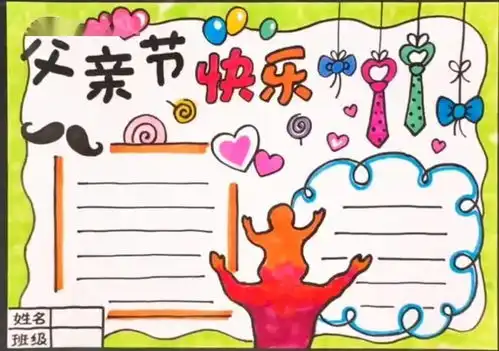 父亲节快乐
姓名
班级